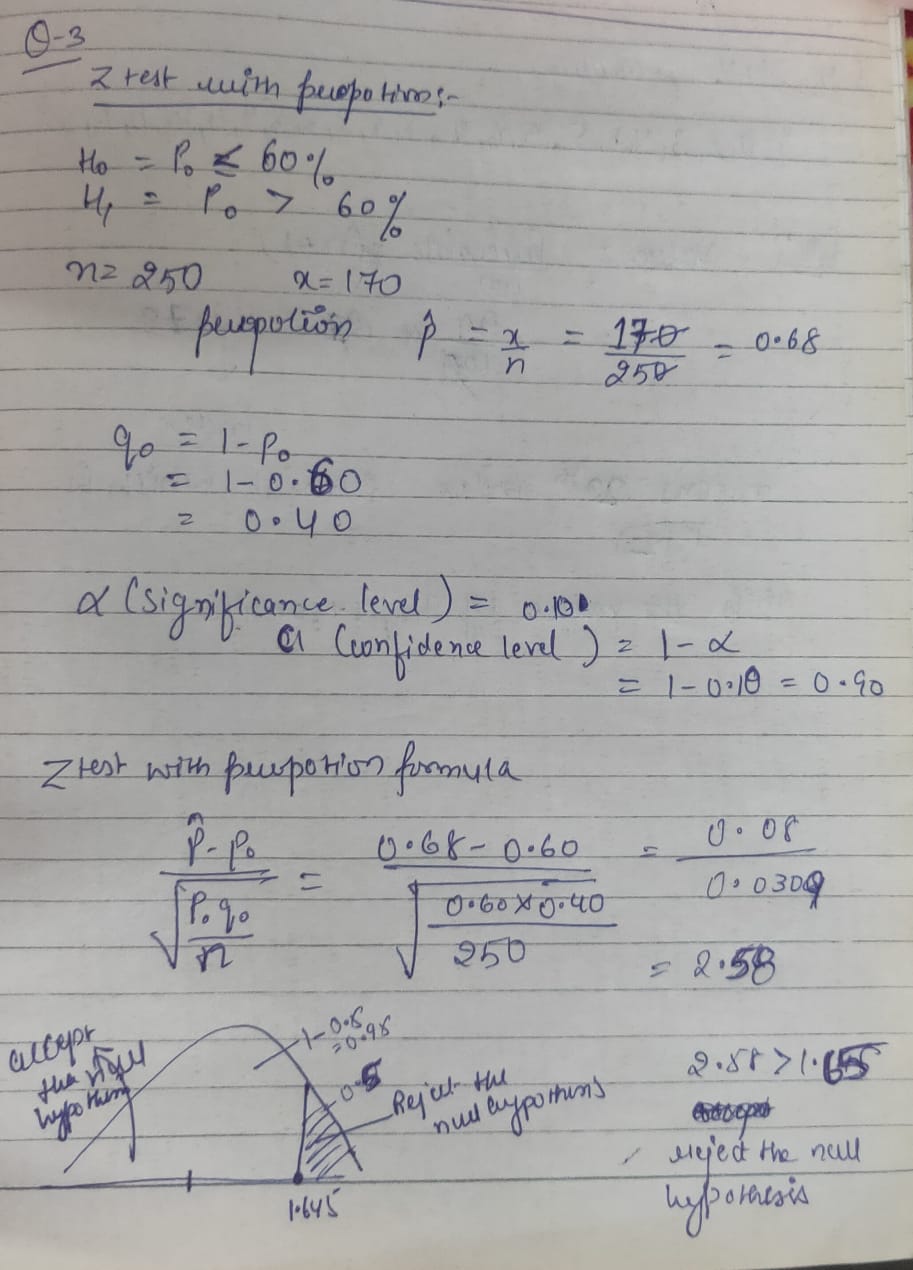 Q-3
Z test with peopotion:-
H₀ = P₀ ≤ 60%
H₁ = P₀ > 60%
n = 250 x = 170
peopotion p̂ = x/n = 170/250 = 0.68
q₀ = 1 - p₀
= 1 - 0.60
= 0.40
α (significance level) = 0.10
CI (confidence level) = 1 - α
= 1 - 0.10 = 0.90
Z test with peopotion formula
(p̂ - p₀)/√(P₀q₀/n) = (0.68 - 0.60)/√(0.60 × 0.40/250) = 0.08/0.0309
= 2.58
accept the null hypothesis
1-0.5
=0.95
0.5
Reject the null hypothesis
1.645
2.58 > 1.655
reject the null
hypothesis